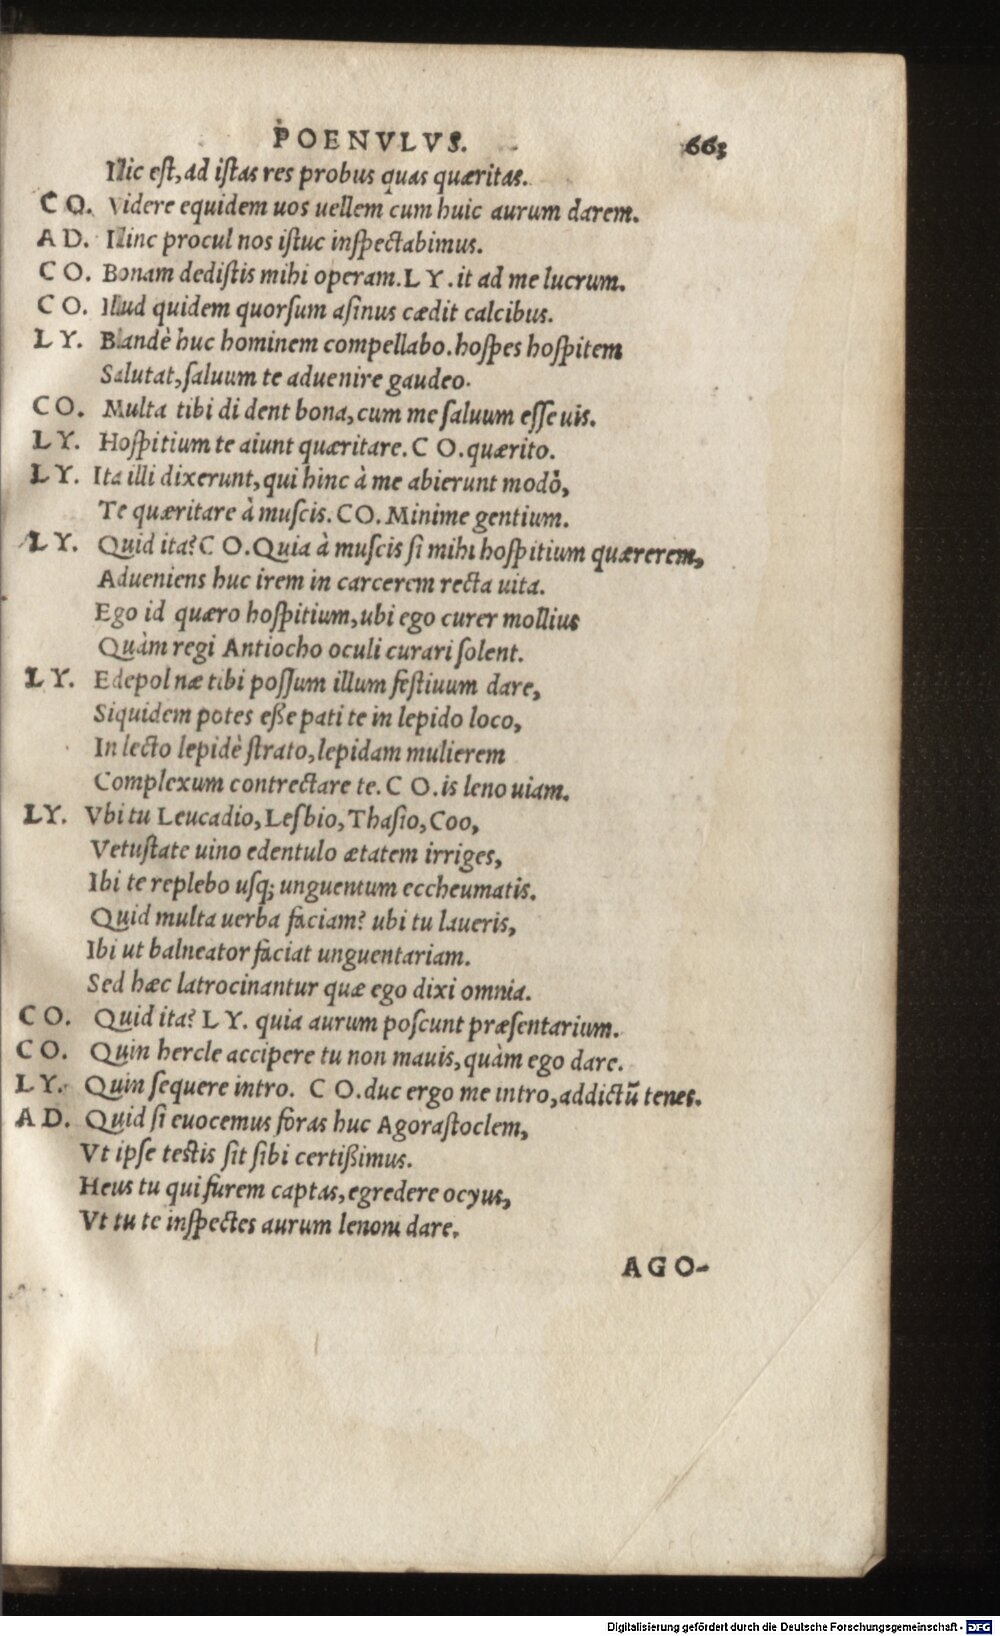 POENVLVS. 663
Illic est, ad istas res probus quas quæritas.
CO. Videre equidem uos uellem cum huic aurum darem.
AD. Illinc procul nos istuc inspectabimus.
CO. Bonam dedistis mihi operam. LY. it ad me lucrum.
CO. Illud quidem quorsum asinus cædit calcibus.
LY. Blandè huc hominem compellabo. hospes hospitem
Salutat, saluum te aduenire gaudeo.
CO. Multa tibi di dent bona, cum me saluum esse uis.
LY. Hospitium te aiunt quæritare. CO. quærito.
LY. Ita illi dixerunt, qui hinc à me abierunt modò,
Te quæritare à muscis. CO. Minime gentium.
LY. Quid ita? CO. Quia à muscis si mihi hospitium quærerem,
Adueniens huc irem in carcerem recta uita.
Ego id quæro hospitium, ubi ego curer mollius
Quàm regi Antiocho oculi curari solent.
LY. Edepol næ tibi possum illum festiuum dare,
Siquidem potes eße pati te in lepido loco,
In lecto lepidè strato, lepidam mulierem
Complexum contrectare te. CO. is leno uiam.
LY. Vbi tu Leucadio, Lesbio, Thasio, Coo,
Vetustate uino edentulo ætatem irriges,
Ibi te replebo usq; unguentum eccheumatis.
Quid multa uerba faciam? ubi tu laueris,
Ibi ut balneator faciat unguentariam.
Sed hæc latrocinantur quæ ego dixi omnia.
CO. Quid ita? LY. quia aurum poscunt præsentarium.
CO. Quin hercle accipere tu non mauis, quàm ego dare.
LY. Quin sequere intro. CO. duc ergo me intro, addictũ tenes.
AD. Quid si euocemus foras huc Agorastoclem,
Vt ipse testis sit sibi certißimus.
Heus tu qui furem captas, egredere ocyus,
Vt tu te inspectes aurum lenoni dare.
AGO-
Digitalisierung gefördert durch die Deutsche Forschungsgemeinschaft - DFG